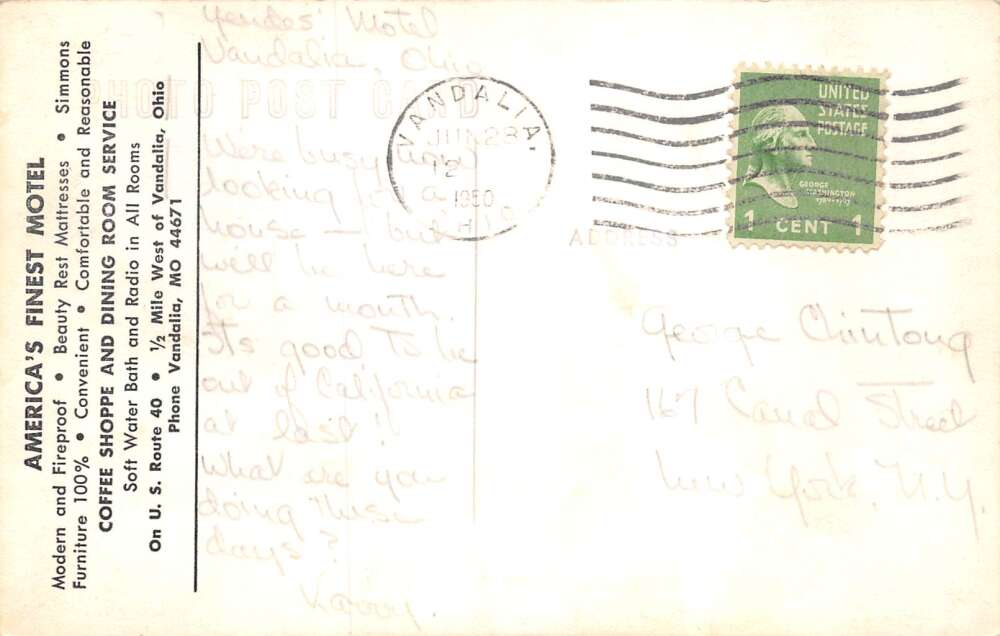 AMERICA'S FINEST MOTEL
Modern and Fireproof • Beauty Rest Mattresses • Simmons
Furniture 100% • Convenient • Comfortable and Reasonable
COFFEE SHOPPE AND DINING ROOM SERVICE
Soft Water Bath and Radio in All Rooms
On U. S. Route 40 • 1/2 Mile West of Vandalia, Ohio
Phone Vandalia, MO 44671
Motel
Vandalia, Ohio
PHOTO POST CARD
We're busy now
looking for a
house — but
will be here
for a month.
It's good to be
out of California
at last!
What are you
doing these
days?
VANDALIA,
JUN 28
12
1950
OHIO
UNITED
STATES
POSTAGE
GEORGE
WASHINGTON
1 CENT 1
ADDRESS
George Chintong
167 Canal Street
New York, N.Y.